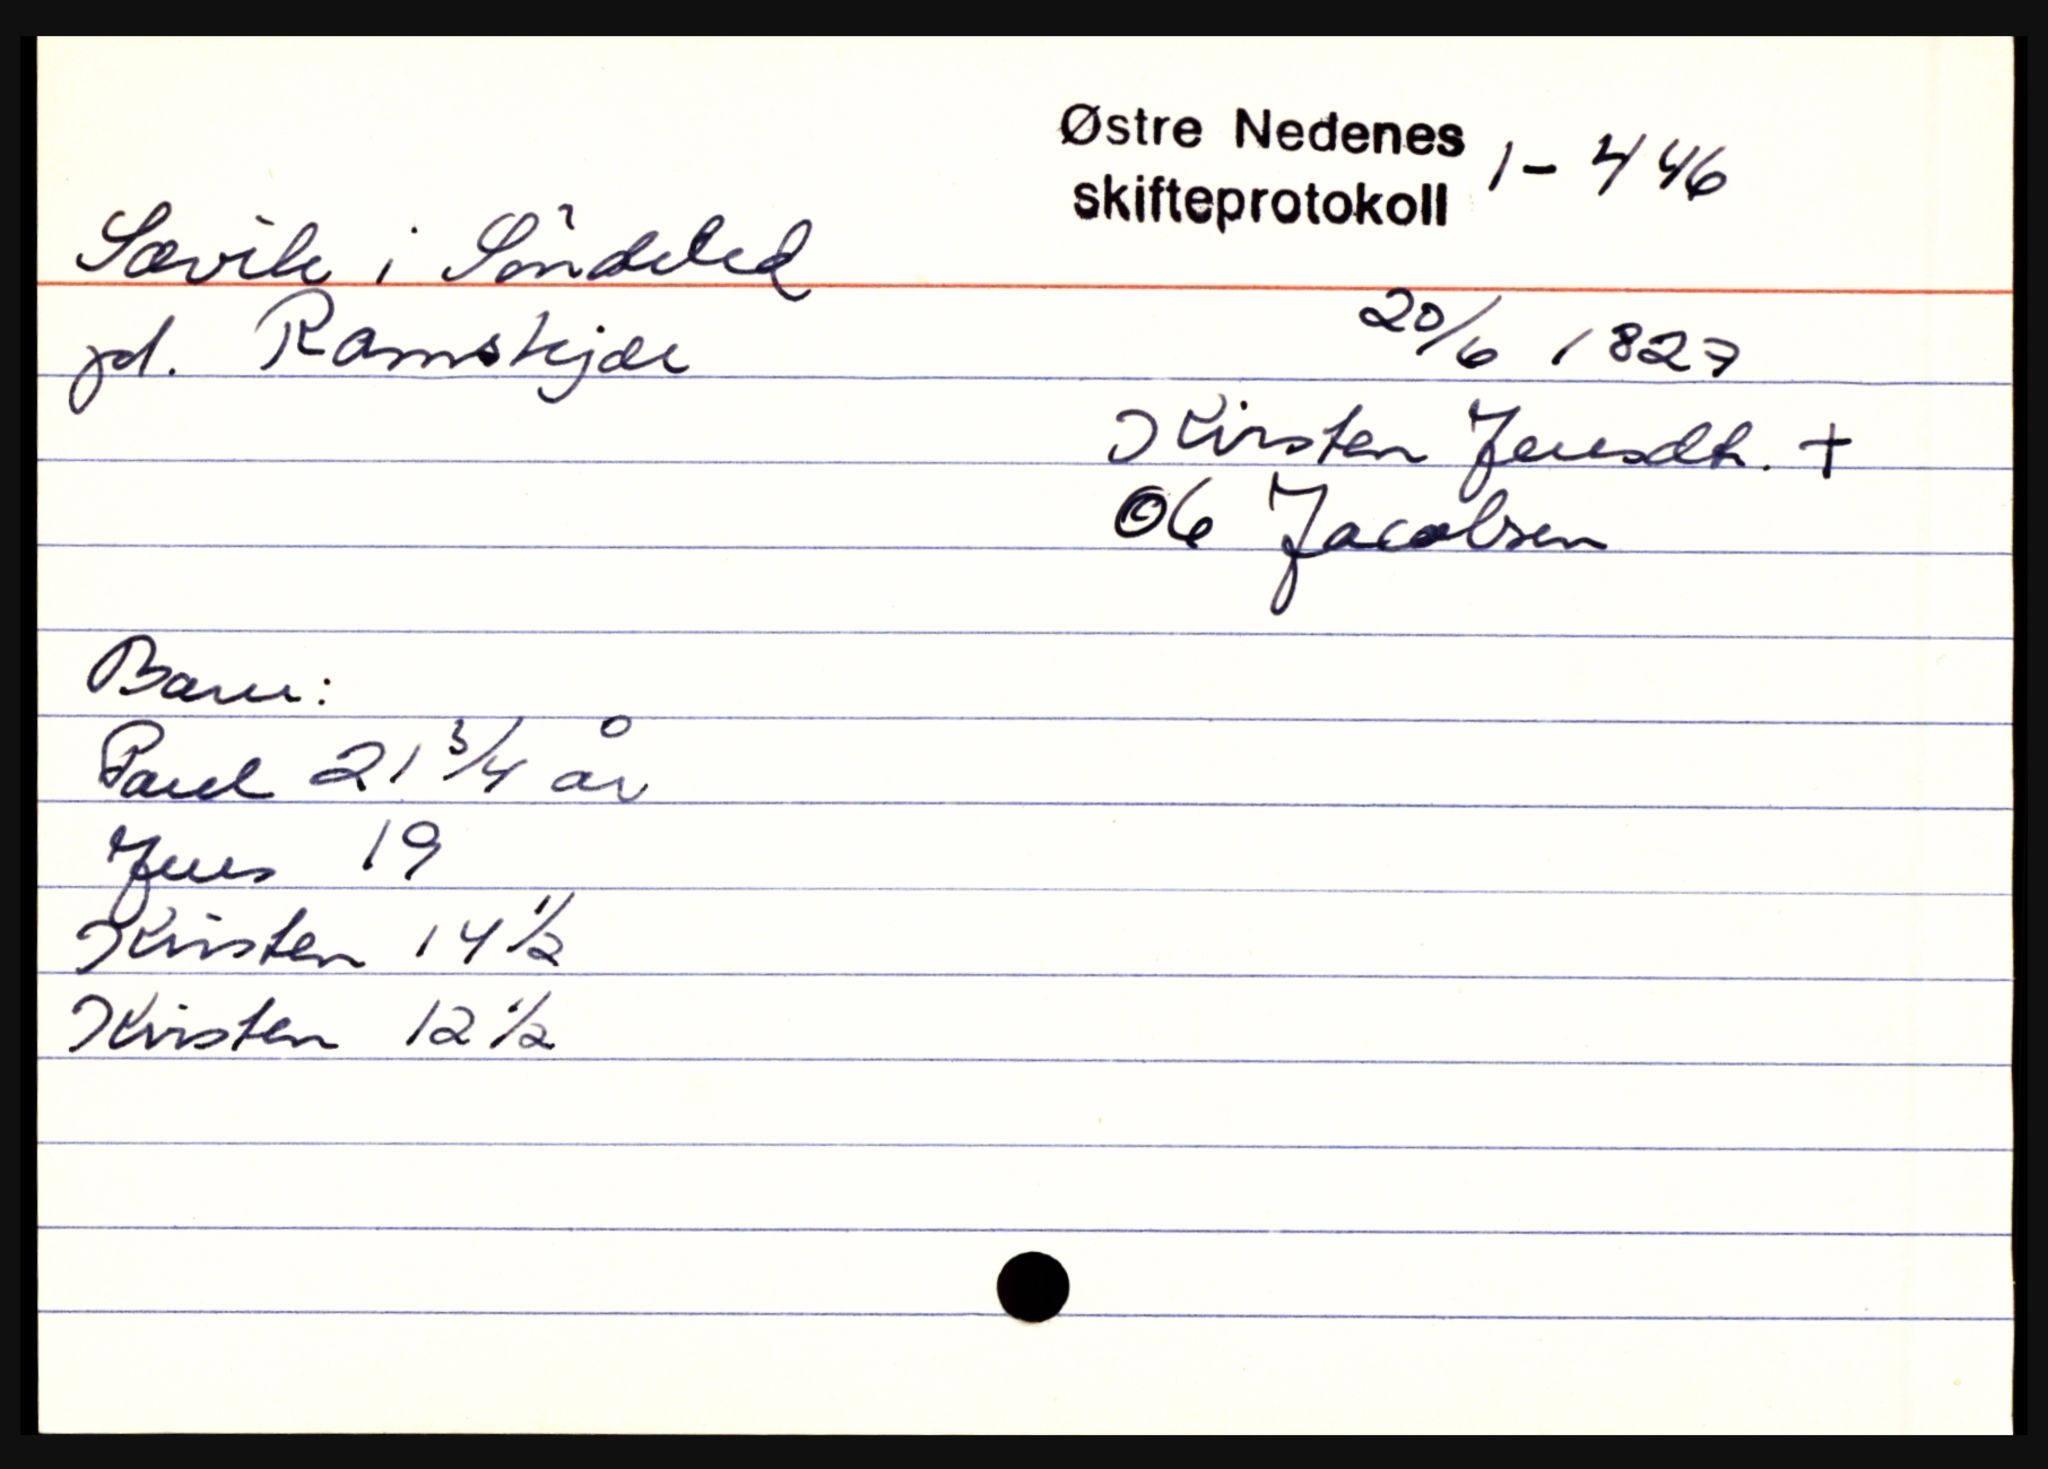 Østre Nedenes
skifteprotokoll 1-446
Sævik i Søndeled
pl. Ramskjær
20/6 1827
Kirsten Jensdtr. +
Ole Jacobsen
Barn:
Paul 21 3/4 år
Jens 19
Kirsten 14 1/2
Kirsten 12 1/2